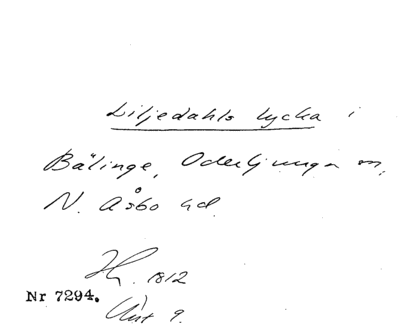 Liljedahls lycka i
Bälinge, Oderljunga sn,
N. Åsbo hd.
1812
Nr 7294.
9.